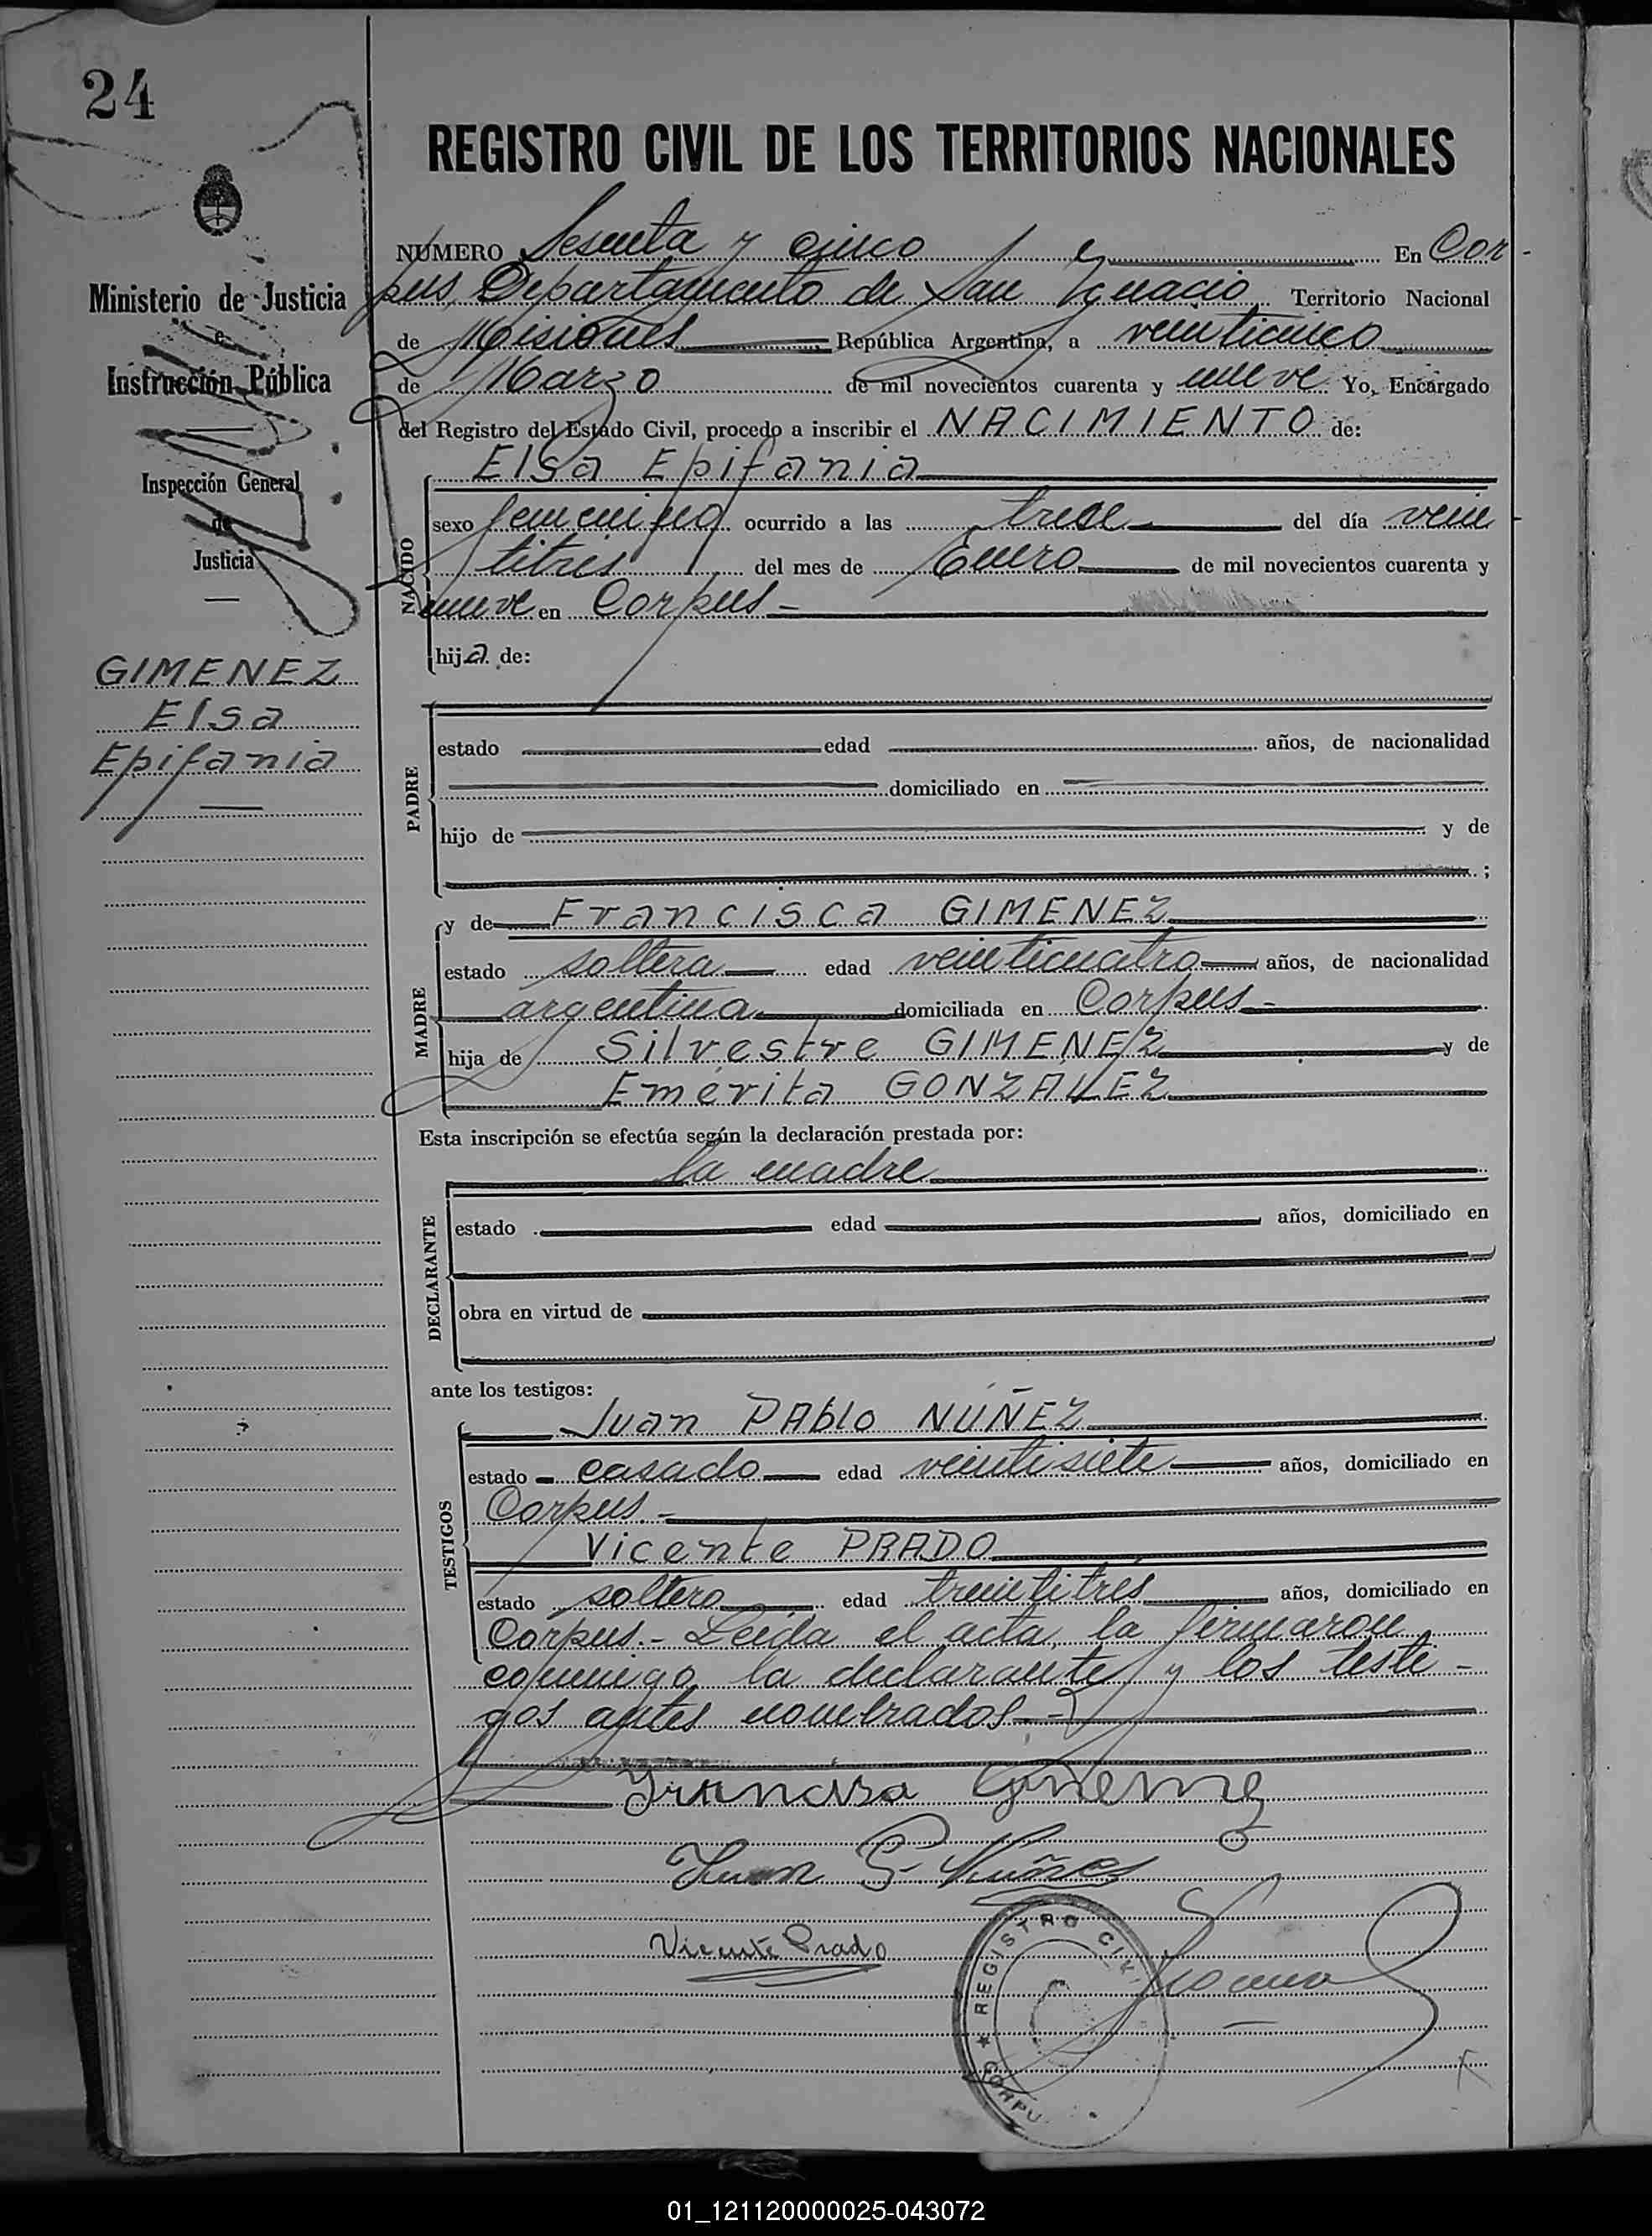 24
REGISTRO CIVIL DE LOS TERRITORIOS NACIONALES
Ministerio de Justicia
e
Instrucción Pública
Inspección General
de
Justicia
GIMENEZ
Elsa
Epifania
NÚMERO Sesenta y cinco En Cor-
pus, Departamento de San Ignacio, Territorio Nacional
de Misiones República Argentina, a veinticinco
de Marzo de mil novecientos cuarenta y nueve Yo, Encargado
del Registro del Estado Civil, procedo a inscribir el NACIMIENTO de:
NACIDO
Elsa Epifania
sexo femenino ocurrido a las trece del día vein
titres del mes de Enero de mil novecientos cuarenta y
nueve en Corpus.-
hija de:
PADRE
estado edad años, de nacionalidad
domiciliado en
hijo de y de
;
MADRE
y de Francisca GIMENEZ
estado soltera edad veinticuatro años, de nacionalidad
argentina domiciliada en Corpus.-
hija de Silvestre GIMENEZ y de
Emérita GONZALEZ
Esta inscripción se efectúa según la declaración prestada por:
DECLARANTE
la madre
estado edad años, domiciliado en
obra en virtud de
ante los testigos:
TESTIGOS
Juan PAblo NÚÑEZ
estado casado edad veintisiete años, domiciliado en
Corpus.-
Vicente PRADO
estado soltero edad treintitrés años, domiciliado en
Corpus.- Leída el acta, la firmaron
conmigo la declarante y los testi-
gos antes nombrados.-
Francisca Gimenez
Juan P. Nuñes
Vicente Prado
REGISTRO CIVIL
CORPUS
01_121120000025-043072